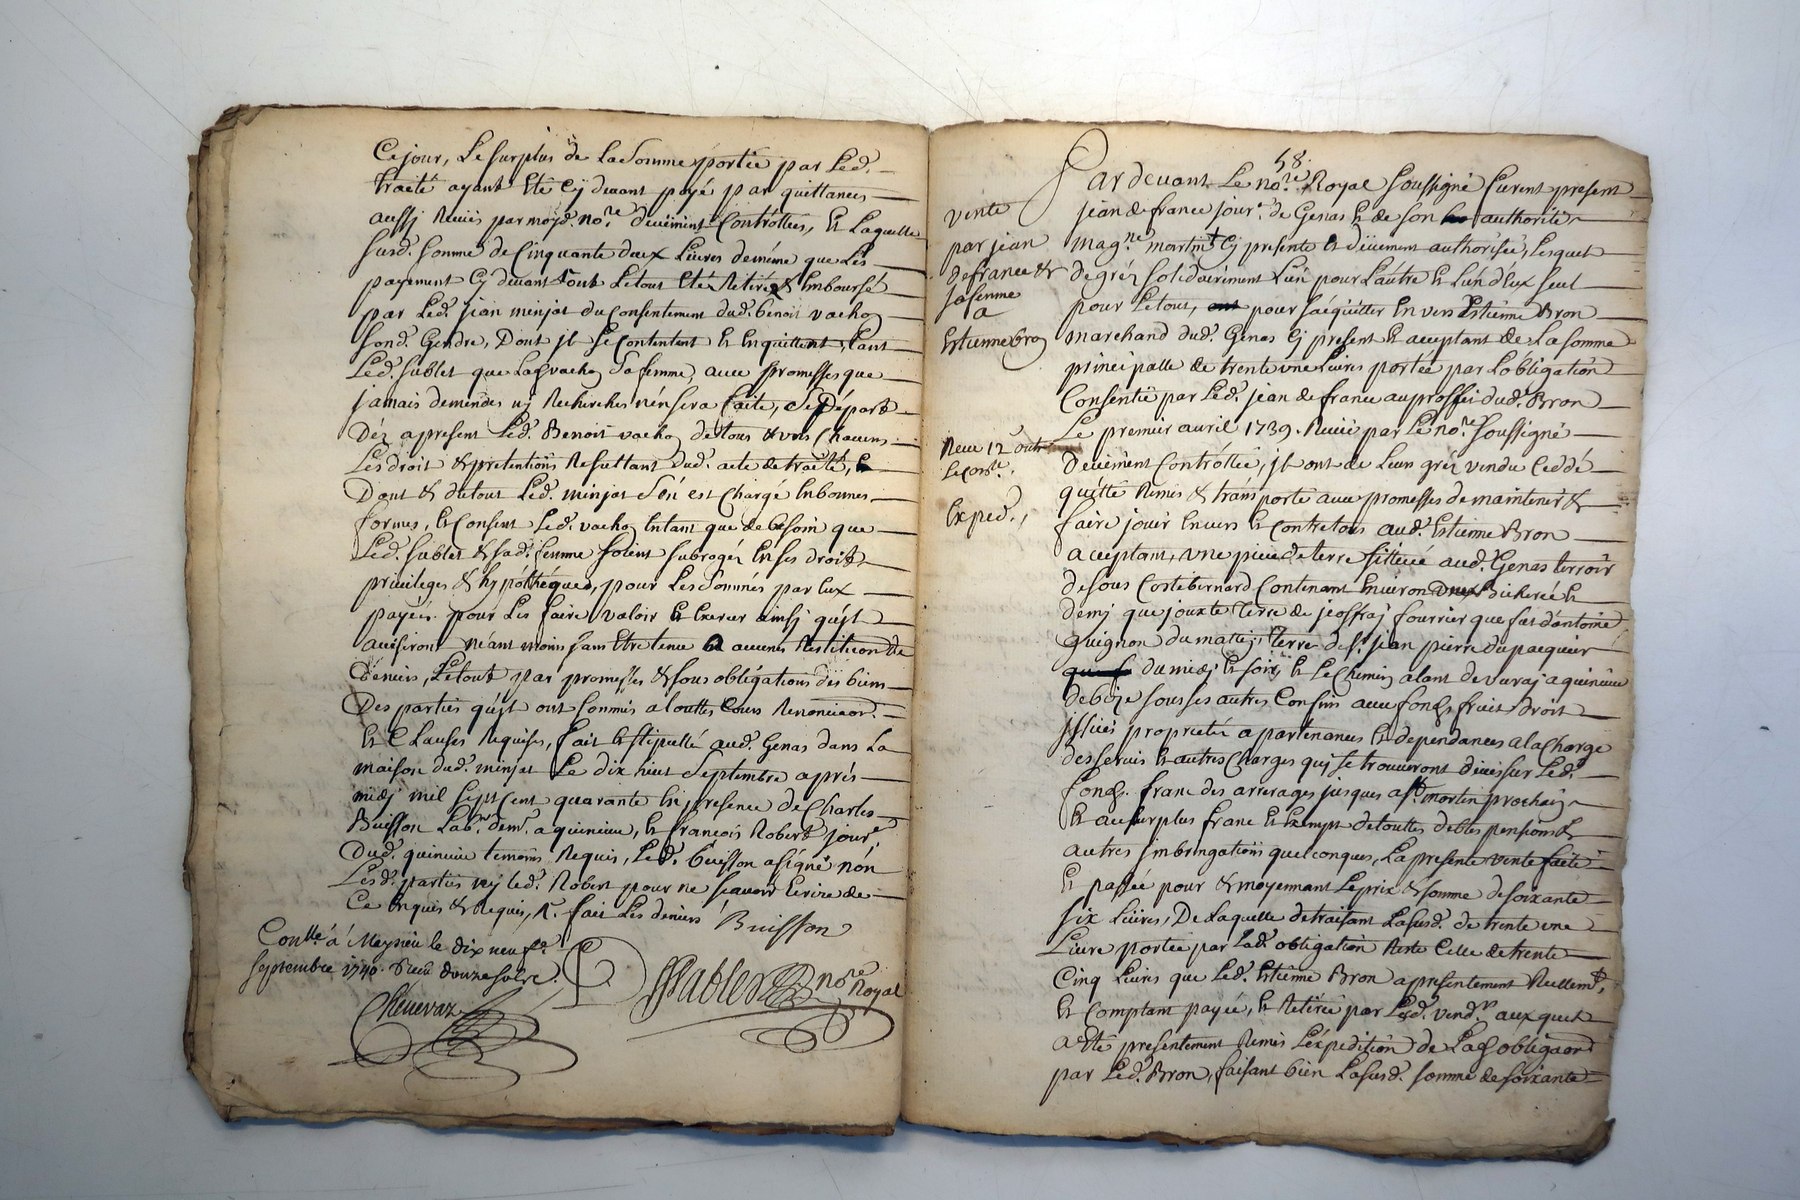 Ce jour, Le surplus de La Somme portée par Led.
traité ayant Eté Cy devant payé par quittances
aussi Receües par moyd. no.re deüement Controllées, Et Laquelle
susd. somme de Cinquante deux Livres de même que Les
payement Cy devant Sont Le tout Eté Retiré & Emboursé
par Led. jean minjat du Consentement dud. benoit vachoz
son d. Gendre, Dont jl Se Contentent Et En quittent, tant
Led. Sublet que Lad. vachoz Sa femme, avec Promesses que
jamais demandes ny Recherches n'en sera faite, Se Départ
Déz apresent Led. Benoit vachoz de tous & uns Chacuns
Les droit & pretentions Resultant dud. acte de traité,
Dont & de tout Led. minjat S'én est Chargé En bonnes
formes, Et Consent Led. vachoz Entant que de besoin que
Led. Sublet & sad. femme soient subrogéz En ses droits
privileges & hypothéques, pour Les Sommes par Eux
payés pour Les faire valoir Et Exercer ainsy qu'jl
aviseront néant moins sans Etre tenu a aucunes Restitution de
Déniers, Le tout par promesses & sous obligations des biens
Des parties qu'jl ont soumis a touttes Cours Renonciaon.
Et Clauses Requises, fait Et stipullé aud. Genas dans La
maison dud. minjat Le dix huit Septembre aprés
midy mil sept Cent quarante En presence de Charles
Buisson Lab.r dem.t a quincieu, Et francois Robert jour.r
Dud. quincieu temoins Requis, Led. buisson a signé non
Lesd. parties ny led. Robert pour ne sçavoir Ecrire de
Ce Enquis & Requis, fait Les deniers Buisson
Con.llé á Meyzieu le dix neuf
septembre 1740. Receü douze sols.
Chenevaz
Sablet no.re Royal
58.
Par devant Le no.re Royal Soussigné furent present
jean de france jour.r de Genas Et de son authorité
mag.ne martin Cy presente Et düement authorisée, Lesquel
de gréz solidairément L'ún pour L'autre Et L'ún d'Eux seul
pour Le tout, pour s'acquitter Envers Estienne Bron
marchand dud. Genas Cy present Et acceptant de La somme
principalle de trente une Livres portée par L'obligation
Consentie par Led. jean de france au proffit dud. Bron
Le premier avril 1739. Receüe par Le no.re Soussigné
deüement Controllée, jl ont de Leur gréz vendu Ceddé
quitté Remis & transporté avec promesses de maintenir &
faire jouir Envers Et Contre tous aud. Estienne Bron
acceptant, une piece de terre sittuée aud. Genas terroir
de sous Coste bernard Contenant Environ deux Bicherée Et
demy que jouxte Terre de jeoffray fourrier que fut d'antoine
Guignon du matin; Terre de s.r jean pierre du pacqueur
du midy Et soir, Et Le Chemin alant de vuray a quincieu
de bize sous ses autres Confins avec fondz fruit droit
jssües proprietéz apartenances Et dependances a la Charge
des servis Et autres Charges quy se trouveront deües sur Led.
fondz. franc des arrerages jusques a s.t martin prochain
Et au surplus franc Et Exempt de touttes debtes pensions &
autres jmbringations quelconques, La presente vente faite
Et passée pour & moyennant Le prix & somme de soixante
six Livres, De Laquelle detraisant La susd. de trente une
Livre portée par Lad. obligation Reste Celle de trente
Cinq Livres que Led. Estienne Bron a presentement Réellem.t
Et Comptant payée, Et Retirée par Lesd. vend.rs auxquel
a Eté presentement Remis L'éxpedition de Lad. obligaon
par Led. Bron, faisant bien La susd. somme de soixante
vente
par jean
de france &
sa femme
a
Estienne bron
Reçu 12 outre
le con.le
Exped.